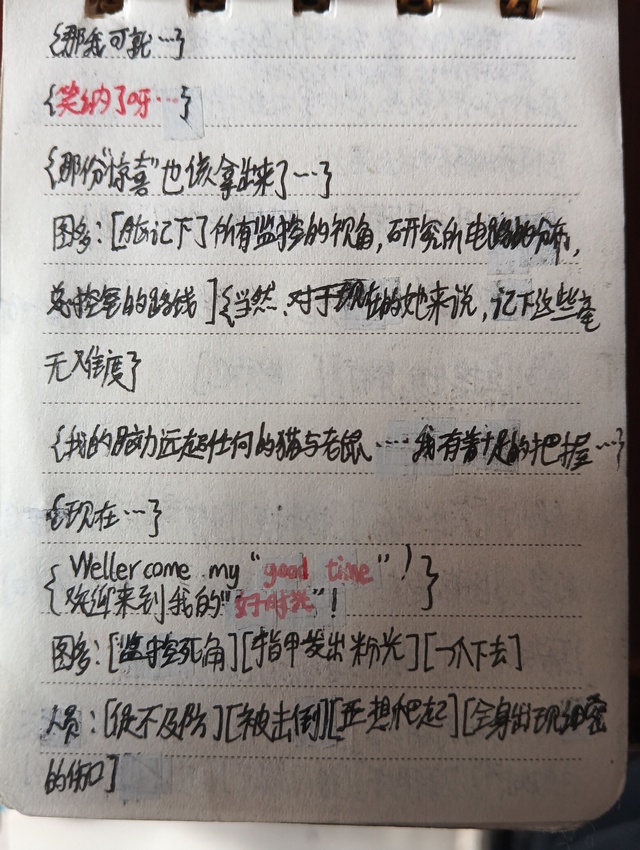 {那我可就…}
{笑纳了呀…}
{那份“惊喜”也该拿出来了…}
图多：[脑记下了所有监控的视角，研究所电路的分布，
总控室的路线]{当然、对于现在的她来说，记下这些毫
无难度}
{我的脑力远超任何的猫与老鼠……我有着十足的把握…}
{现在…}
{Wellercome my “good time”！
欢迎来到我的“好时光”！}
图多：[监控死角][指甲发出粉光][一爪下去]
人员：[促不及防][被击倒][正想爬起][全身出现细密
的伤口]